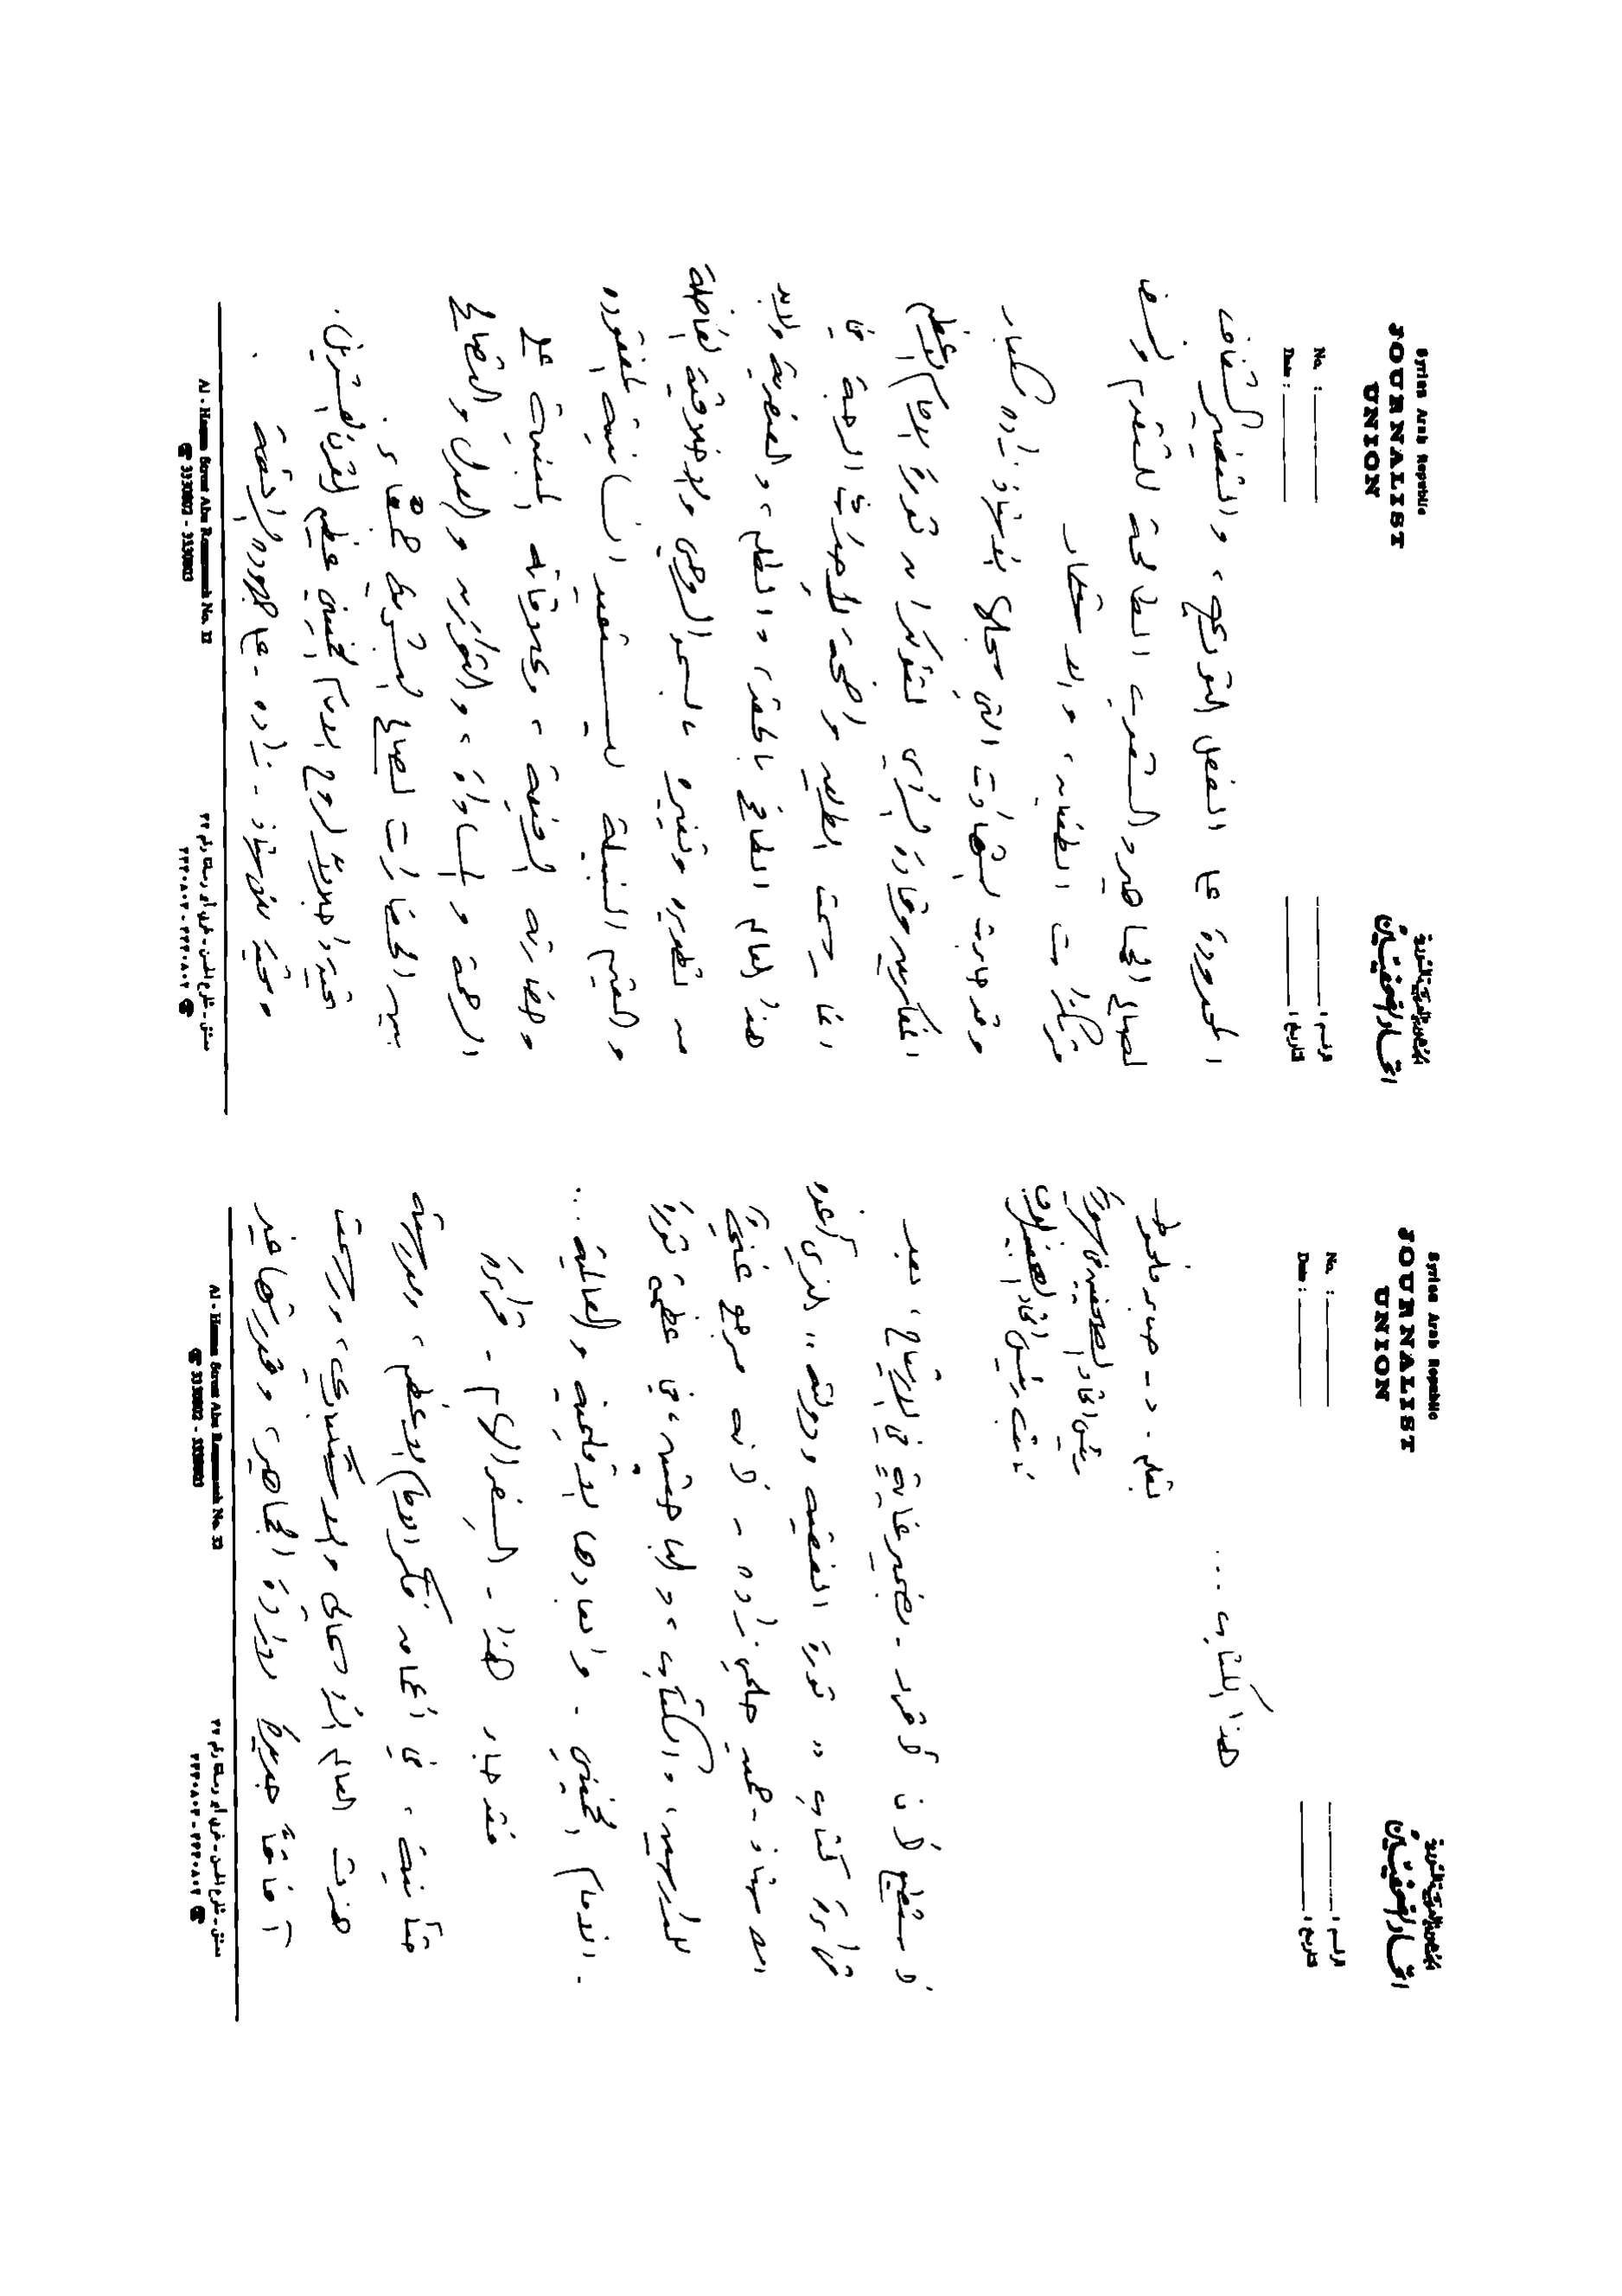 Syrian Arab Republic
JOURNALIST
UNION
الجمهورية العربية السورية
اتحاد الصحفيين
No. :
Date :
الرقم :
التاريخ :
هذا الكتاب ...
بقلم - د - صابر فلحوط
رئيس اتحاد الصحفيين في سورية
نائب رئيس اتحاد الصحفيين العرب
لا أستطيع إلا أن أقول - بضمير غاية في الارتياح، بعد
قراءة كتاب " ثورة الفقيه ودولته " الذي أعده
الأستاذ - حميد حلمي زاده - انه مرجع غني
للدارسين، والكتاب، والباحثين، في عظمة ثورة
الامام الخميني - وأبعادها الإقليمية والعالمية ...
فقد جاء هذا - السفر الهام - قراءة
متأنية، في أعماق فكر الامام الأعظم، ومدرسته
هزت العالم الرأسمالي والاستكباري، ورسمت
آفاقاً جديدة لارادة الجماهير، وقدرتها غير
دمشق - شارع المحسن - غربي أبو رمانة رقم ٣٢
☎ ٣٣٣٠٨٠٢ - ٣٣٣٠٨٠٣
Al - Hassn Street Abu Rommaneh No. 32
☎ 3330802 - 3330803
Syrian Arab Republic
JOURNALIST
UNION
الجمهورية العربية السورية
اتحاد الصحفيين
No. :
Date :
الرقم :
التاريخ :
المحدودة على الفعل التوعوي، والتغيير
لصالح الجماهير والشعوب الطامحة للتقدم
مرتكزات الطغيان، والاستكبار
وقد جاءت الشهادات التي سجلها الأستاذ زاده لكبار
المفكرين وقادة الرأي لتؤكد أن ثورة الامام الأعظم
انما رسمت الطريق واضحة
هذا العالم الطافح بالحقد، والظلم، والعنصرية ولابد
من تطهيره وتغييره بالسمو الروحي والأخلاقية الفاضلة
والقيم النبيلة ليستعيد انسانيته المفقودة
وحضارته
الرحمة والمساواة، والتوازن والعدل والتصالح
بين الحضارات لصالح البشرية جمعاء.
تحية وإجلالاً لروح الامام الخميني عظيم القرن العشرين.
وتحية للأستاذ - زاده - على جهوده الرائعة.
دمشق - شارع المحسن - غربي أبو رمانة رقم ٣٢
☎ ٣٣٣٠٨٠٢ - ٣٣٣٠٨٠٣
Al - Hassn Street Abu Rommaneh No. 32
☎ 3330802 - 3330803